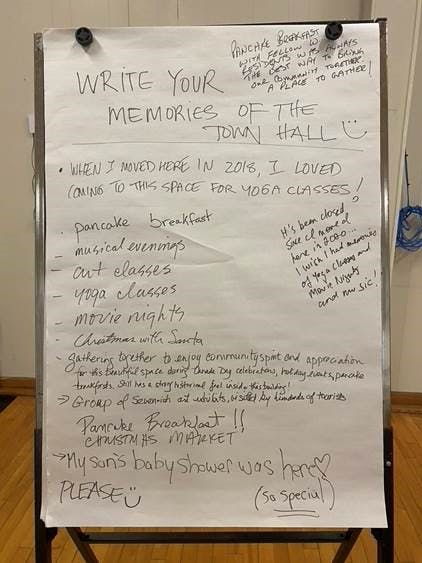 PANCAKE BREAKFAST
WITH FELLOW
RESIDENTS WAS ALWAYS
THE BEST WAY TO BRING
OUR COMMUNITY TOGETHER.
A PLACE TO GATHER!
WRITE YOUR
MEMORIES OF THE
TOWN HALL
• WHEN I MOVED HERE IN 2018, I LOVED
COMING TO THIS SPACE FOR YOGA CLASSES!
It's been closed
since I moved
here in 2020...
I wish I had memories
of Yoga Classes and
Movie Nights
and music!
- pancake breakfast
- musical evenings
- art classes
- yoga classes
- movie nights
- Christmas with Santa
- gathering together to enjoy community spirit and appreciation
for this beautiful space during Canada Day celebrations, holiday events, pancake
breakfasts. Still has a strong historical feel inside this building!
→ Group of Seventish art exhibits, visited by hundreds of tourists
Pancake Breakfast !!
CHRISTMAS MARKET
→ My son's baby shower was here♡
PLEASE
(So Special)